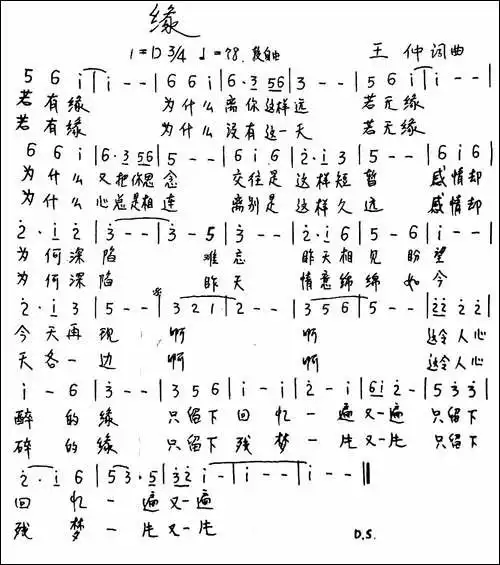 缘
1=D 3/4 ♩=78. 较自由 王 仲 词曲
5 6 i | i - - | 6 6 i | 6·3 56 | 3 - - | 5 6 i | i - - |
若 有 缘 为 什 么 离 你 这样 远 若 无 缘
若 有 缘 为 什 么 没 有 这一 天 若 无 缘
6 6 i | 6·3 56 | 5 - - | 6 i 6 | 2·i 3 | 5 - - | 6 i 6 |
为 什 么 又 把你思 念 交 往 是 这 样 短 暂 感 情 却
为 什 么 心 总是相 连 离 别 是 这 样 久 远 感 情 却
2·i 2 | 3 - - | 3 - 5 | 3 - - | 2·i 6 | 5 - 6 | i - - |
为 何 深 陷 难 忘 昨 天 相 见 盼 望
为 何 深 陷 昨 天 情 意 绵 绵 如 今
2·i 3 | 5 - - | 3 2 1 | 2 - - | 3 5 6 | 5 - - | 22 2 2 |
今 天 再 现 啊 啊 这令 人 心
天 各 一 边 啊 啊 这令 人 心
i - 6 | 3 - - | 3 5 6 | i - i | 2 - i | 6i 2 - | 5 3 3 |
醉 的 缘 只 留 下 回 忆 一 遍 又 一 遍 只 留 下
碎 的 缘 只 留 下 残 梦 一 片 又 一 片 只 留 下
2·i 6 | 5 3·5 | 32 i - | i - - | i - - ‖
回 忆 一 遍 又 一 遍
残 梦 一 片 又 一 片 D.S.